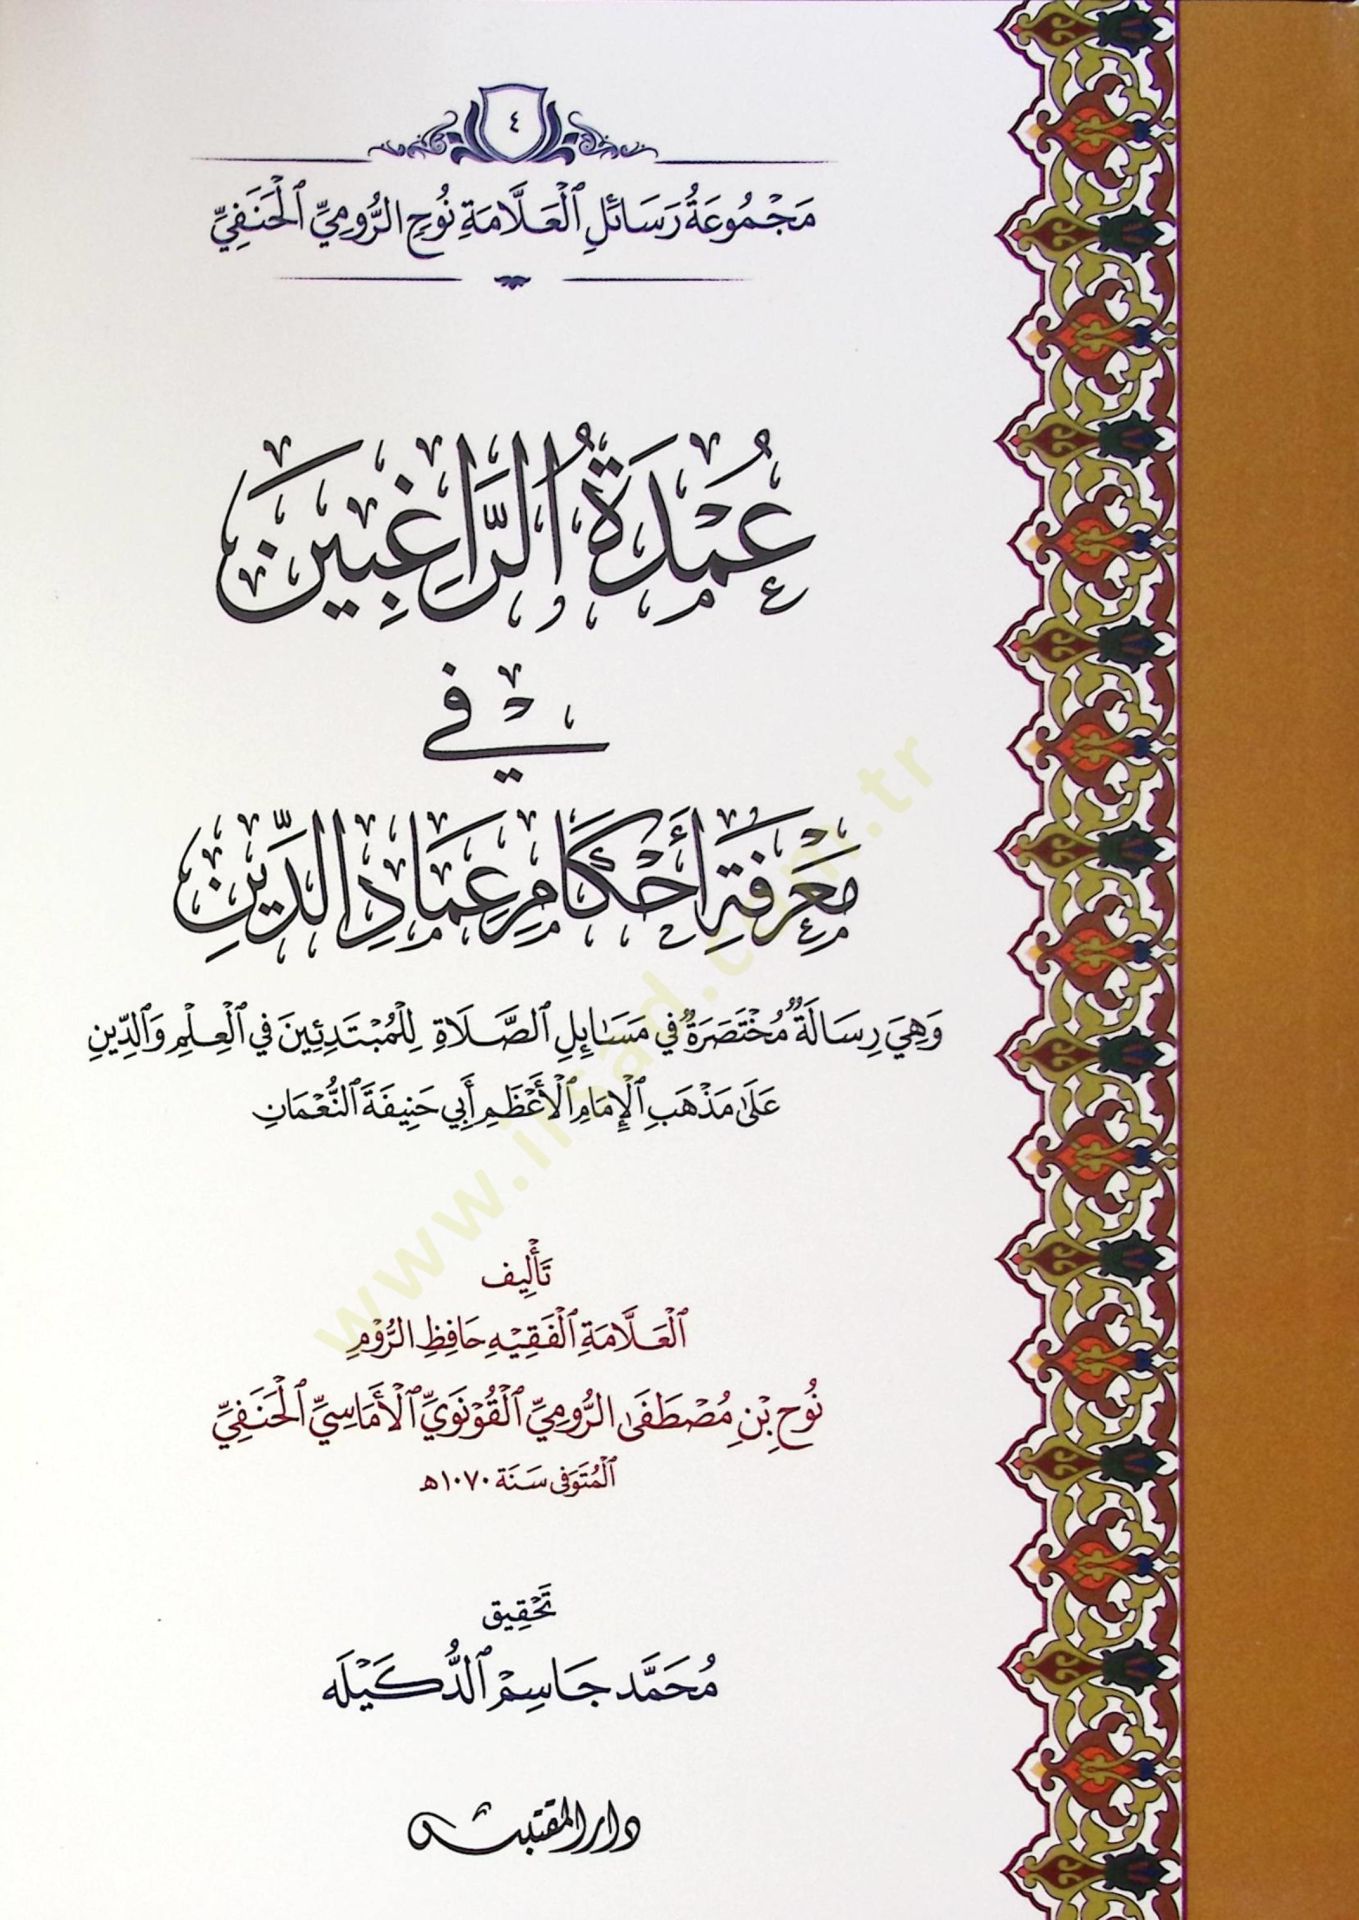 ٤
مَجْمُوعَةُ رَسَائِلِ الْعَلَّامَةِ نُوحِ الرُّومِيِّ الْحَنَفِيِّ
عُمْدَةُ الرَّاغِبِينَ
فِي
مَعْرِفَةِ أَحْكَامِ عِمَادِ الدِّينِ
وَهِيَ رِسَالَةٌ مُخْتَصَرَةٌ فِي مَسَائِلِ الصَّلَاةِ لِلْمُبْتَدِئِينَ فِي الْعِلْمِ وَالدِّينِ
عَلَى مَذْهَبِ الْإِمَامِ الْأَعْظَمِ أَبِي حَنِيفَةَ النُّعْمَانِ
تَأْلِيف
الْعَلَّامَةِ الْفَقِيْهِ حَافِظِ الرُّوْمِ
نُوحِ بْنِ مُصْطَفَى الرُّومِيِّ الْقُوْنَوِيِّ الْأَمَاسِيِّ الْحَنَفِيِّ
الْمُتَوَفَّى سَنَة ١٠٧٠هـ
تَحْقِيق
مُحَمَّد جَاسِمْ الدُّكَيْلَه
دار المقتبس
www.irsad.com.tr